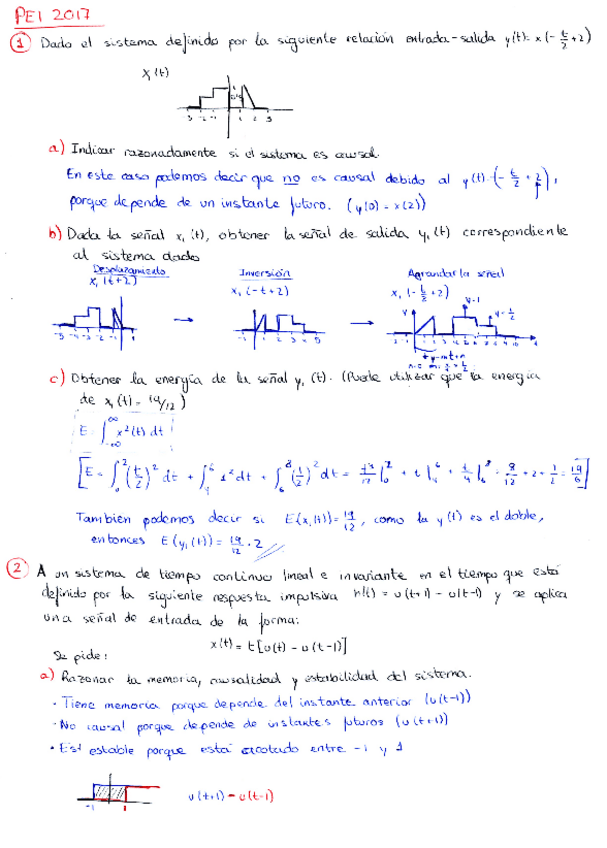 PEI 2017
① Dado el sistema definido por la siguiente relación entrada-salida y(t)= x(-t/2+2)
x₁(t)
a) Indicar razonadamente si el sistema es causal.
En este caso podemos decir que no es causal debido al y(t)·(-t/2+2),
porque depende de un instante futuro. (y(0)=x(2))
b) Dada la señal x₁(t), obtener la señal de salida y₁(t) correspondiente
al sistema dado
Desplazamiento
x₁(t+2)
Inversión
x₁(-t+2)
Agrandar la señal
x₁(-t/2+2)
c) Obtener la energía de la señal y₁(t). (Puede utilizar que la energía
de x₁(t)=19/12)
E=∫x²(t) dt
[E=∫₀²(t/2)² dt + ∫₄⁶ 1² dt + ∫₆⁸(1/2)² dt = t³/12|₀² + t|₄⁶ + t/4|₆⁸ = 8/12+2+1/2=19/6]
Tambien podemos decir si E(x₁(t))=19/12, como la y(t) es el doble,
entonces E(y₁(t))=19/12·2
② A un sistema de tiempo continuo lineal e invariante en el tiempo que está
definido por la siguiente respuesta impulsiva h(t)=u(t+1)-u(t-1) y se aplica
una señal de entrada de la forma:
x(t)=t[u(t)-u(t-1)]
Se pide:
a) Razonar la memoria, causalidad y estabilidad del sistema.
· Tiene memoria porque depende del instante anterior (u(t-1))
· No causal porque depende de instantes futuros (u(t+1))
· Est estable porque está acotado entre -1 y 1
-1 1 u(t+1)-u(t-1)